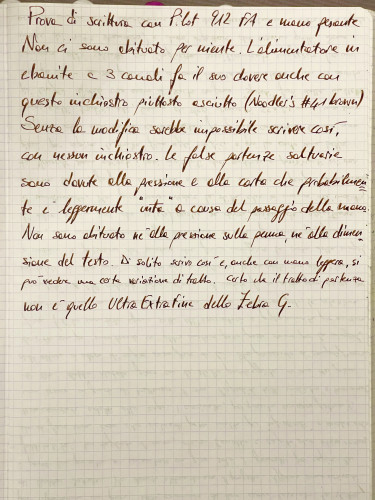 Prova di scrittura con Pilot 912 FA e mano pesante
Non ci sono abituato per niente. L'alimentatore in
ebanite a 3 canali fa il suo dovere anche con
questo inchiostro piuttosto asciutto (Noodler's #41 brown)
Senza la modifica sarebbe impossibile scrivere così,
con nessun inchiostro. Le false partenze saltuarie
sono dovute alla pressione e alla carta che probabilmen
te è leggermente "unta" a causa del passaggio della mano.
Non sono abituato nè alla pressione sulla penna, nè alla dimen
sione del testo. Di solito scrivo così e, anche con mano leggera, si
può vedere una certa variazione di tratto. Certo che il tratto di partenza
non è quello Ultra Extra Fine dello Zebra G.